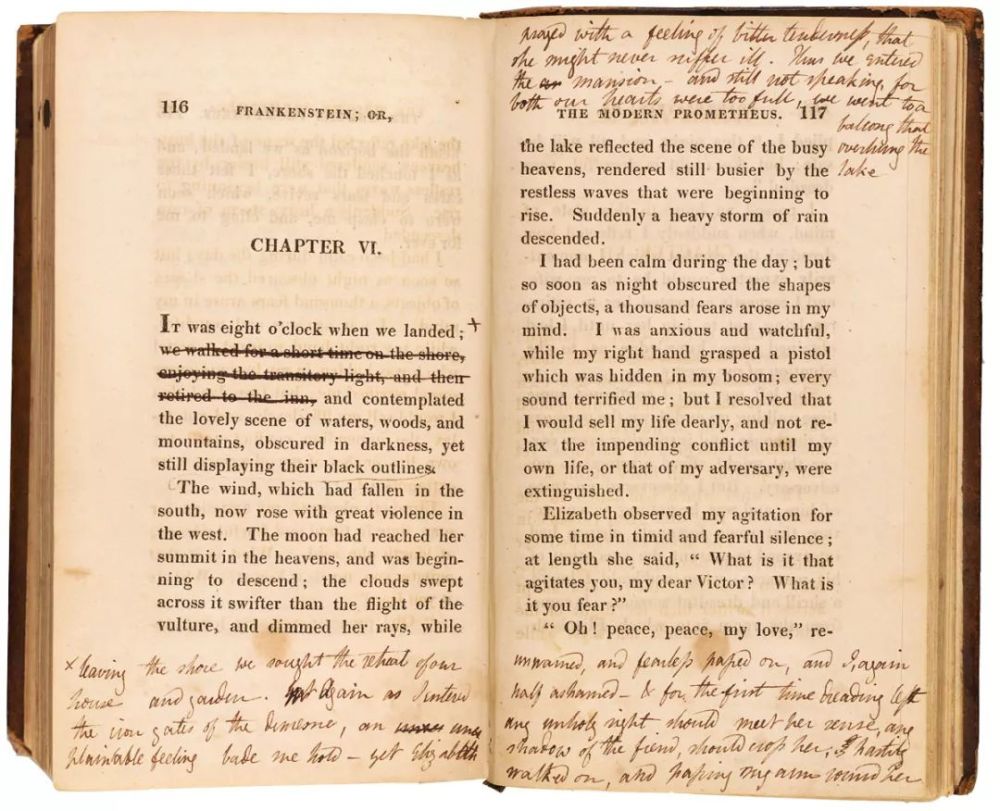 116 FRANKENSTEIN; OR,
CHAPTER VI.
IT was eight o'clock when we landed; +
we walked for a short time on the shore,
enjoying the transitory light, and then
retired to the inn, and contemplated
the lovely scene of waters, woods, and
mountains, obscured in darkness, yet
still displaying their black outlines.
The wind, which had fallen in the
south, now rose with great violence in
the west. The moon had reached her
summit in the heavens, and was begin-
ning to descend; the clouds swept
across it swifter than the flight of the
vulture, and dimmed her rays, while
× leaving the shore we sought the retreat of our
house and garden. Again as I entered
the iron gates of the demesne, an unex
plainable feeling bade me hold – yet Elizabeth
prayed with a feeling of bitter tenderness, that
she might never suffer ill. Thus we entered
the mansion – and still not speaking, for
both our hearts were too full, we went to a
balcony that
overhung the
lake
THE MODERN PROMETHEUS. 117
the lake reflected the scene of the busy
heavens, rendered still busier by the
restless waves that were beginning to
rise. Suddenly a heavy storm of rain
descended.
I had been calm during the day; but
so soon as night obscured the shapes
of objects, a thousand fears arose in my
mind. I was anxious and watchful,
while my right hand grasped a pistol
which was hidden in my bosom; every
sound terrified me; but I resolved that
I would sell my life dearly, and not re-
lax the impending conflict until my
own life, or that of my adversary, were
extinguished.
Elizabeth observed my agitation for
some time in timid and fearful silence;
at length she said, “ What is it that
agitates you, my dear Victor? What is
it you fear?”
“ Oh! peace, peace, my love,” re-
unwarned, and fearless passed on, and I, again
half ashamed – & for the first time dreading lest
any unholy sight should meet her sense, any
shadow of the fiend, should cross her, I hastily
walked on, and passing my arm round her